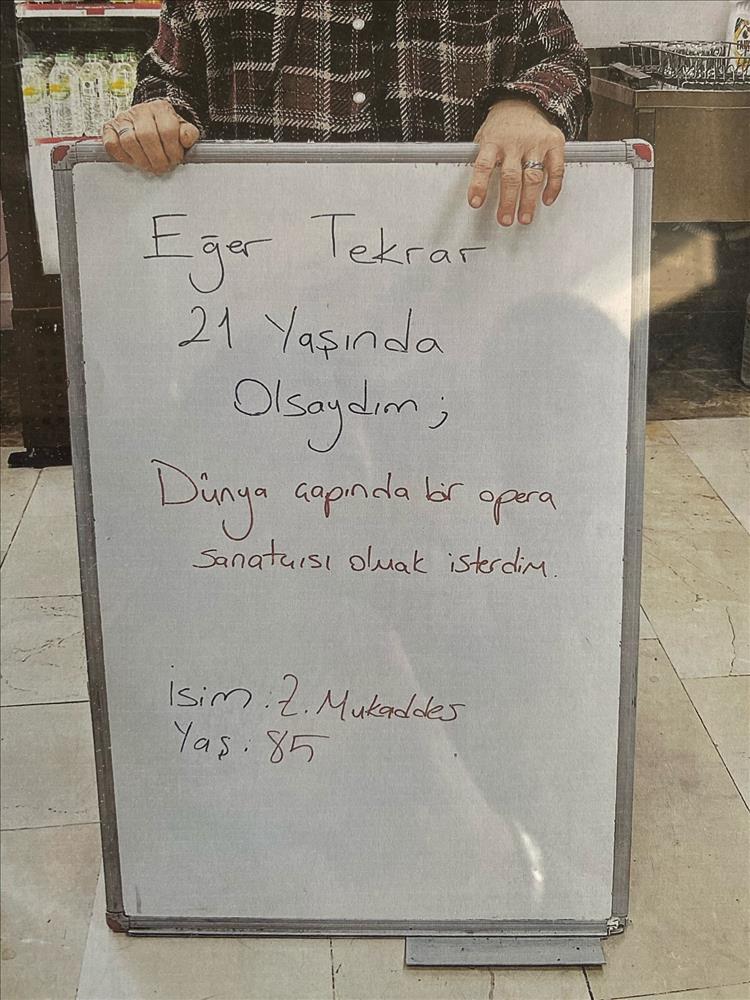 Eğer Tekrar
21 Yaşında
Olsaydım;
Dünya çapında bir opera
sanatçısı olmak isterdim.
İsim: Z. Mukaddes
Yaş: 85